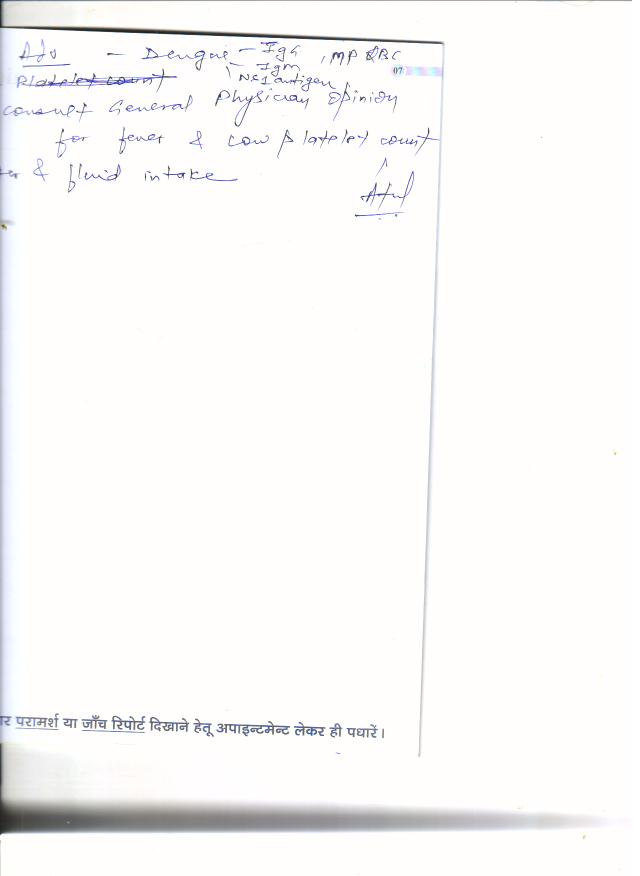 Adv - Dengue - IgG, MP QBC
- Igm
NS1 antigen
07
Platelet count
consult General Physician Opinion
for fever & low platelet count
er & fluid intake
Atul
र परामर्श या जाँच रिपोर्ट दिखाने हेतू अपाइन्टमेन्ट लेकर ही पधारें।